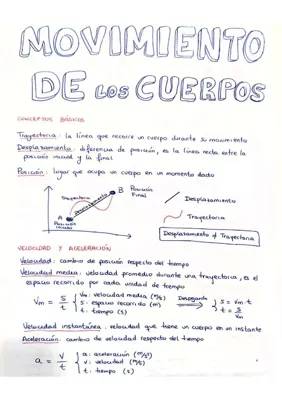 MOVIMIENTO
DE LOS CUERPOS
CONCEPTOS BÁSICOS
Trayectoria: la línea que recorre un cuerpo durante su movimiento
Desplazamiento: diferencia de posición, es la línea recta entre la
posición inicial y la final
Posición: lugar que ocupa un cuerpo en un momento dado
Trayectoria
Desplazamiento
B Posición
Final
A
Posición
Inicial
Desplazamiento
Trayectoria
Desplazamiento ≠ Trayectoria
VELOCIDAD Y ACELERACIÓN
Velocidad: cambio de posición respecto del tiempo
Velocidad media: velocidad promedio durante una trayectoria, es el
espacio recorrido por cada unidad de tiempo
Vm = s/t { Vm: velocidad media (m/s)
s: espacio recorrido (m)
t: tiempo (s)
Despejando { s = vm t
t = s/vm
Velocidad instantánea: velocidad que tiene un cuerpo en un instante
Aceleración: cambio de velocidad respecto del tiempo
a = v/t { a: aceleración (m/s²)
v: velocidad (m/s)
t: tiempo (s)